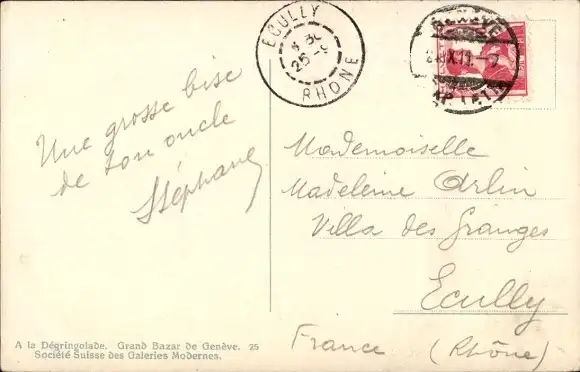 ECULLY
RHONE
25
GENÈVE
Une grosse bise
de ton oncle
Stéphane
Mademoiselle
Madeleine Arlin
Villa des Granges
Ecully
France (Rhône)
A la Dégringolade. Grand Bazar de Genève. 25
Société Suisse des Galeries Modernes.